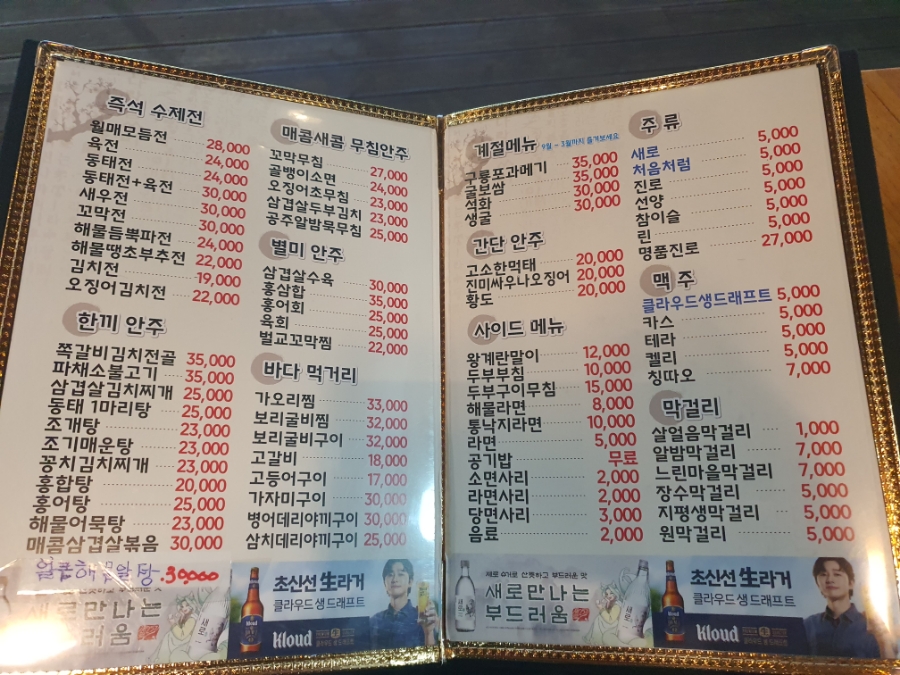 즉석 수제전
월매모듬전 28,000
육전 24,000
동태전 24,000
동태전+육전 30,000
새우전 30,000
꼬막전 30,000
해물듬뿍파전 24,000
해물땡초부추전 22,000
김치전 19,000
오징어김치전 22,000
한끼 안주
쪽갈비김치전골 35,000
파채소불고기 35,000
삼겹살김치찌개 25,000
동태 1마리탕 25,000
조개탕 23,000
조기매운탕 23,000
꽁치김치찌개 23,000
홍합탕 20,000
홍어탕 25,000
해물어묵탕 23,000
매콤삼겹살볶음 30,000
얼큰해물알탕 30,000
매콤새콤 무침안주
꼬막무침 27,000
골뱅이소면 24,000
오징어초무침 23,000
삼겹살두부김치 23,000
공주알밤묵무침 25,000
별미 안주
삼겹살수육 30,000
홍삼합 35,000
홍어회 25,000
육회 25,000
벌교꼬막찜 22,000
바다 먹거리
가오리찜 33,000
보리굴비찜 32,000
보리굴비구이 32,000
고갈비 18,000
고등어구이 17,000
가자미구이 30,000
병어데리야끼구이 30,000
삼치데리야끼구이 25,000
새로만나는
부드러움
초신선 生라거
클라우드 생 드래프트
Kloud
계절메뉴 9월 ~ 3월까지 즐겨보세요
구룡포과메기 35,000
굴보쌈 35,000
석화 30,000
생굴 30,000
간단 안주
고소한먹태 20,000
진미싸우나오징어 20,000
황도 20,000
사이드 메뉴
왕계란말이 12,000
두부부침 10,000
두부구이무침 15,000
해물라면 8,000
통낙지라면 10,000
라면 5,000
공기밥 무료
소면사리 2,000
라면사리 2,000
당면사리 3,000
음료 2,000
주 류
새로 5,000
처음처럼 5,000
진로 5,000
선양 5,000
참이슬 5,000
린 5,000
명품진로 27,000
맥 주
클라우드생드래프트 5,000
카스 5,000
테라 5,000
켈리 5,000
칭따오 7,000
막걸리
살얼음막걸리 1,000
알밤막걸리 7,000
느린마을막걸리 7,000
장수막걸리 5,000
지평생막걸리 5,000
원막걸리 5,000
새로 슈가로 산뜻하고 부드러운 맛
새로만나는
부드러움
초신선 生라거
클라우드 생 드래프트
Kloud